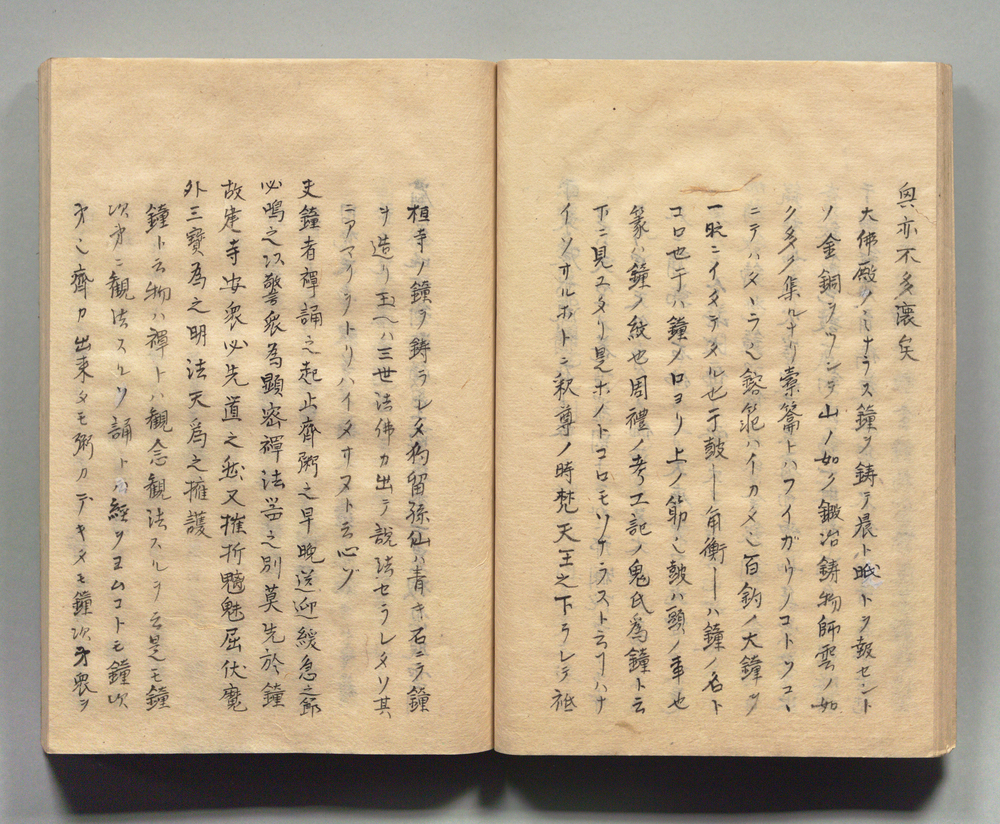 奥亦不多瀼矣
大佛殿ノミナラス鐘ヲ鋳テ晨ト昏トヲ報セント
ノ金銅ヲツンテ山ノ如ク鍛冶鋳物師雲ノ如
ク多ク集ルナリ橐籥トハフイガウノコトツコヽ
ニテハタヽラ也鎔范ハイカタ也百鈞ノ大鐘ヲ
一時ニイタテタル也于鼓ー角衡ーハ鐘ノ名ト
コロ也于ハ鐘ノ口ヨリ上ノ節也鼓ハ頭ノ事也
篆ハ鐘ノ紋也周禮ノ考工記ノ鬼氏為鐘ト云
下ニ見エタリ是ホノトコロモソケラスト云フハナ
イソサルホトニ釈尊ノ時梵天王之下ラレテ祗
桓寺ノ鐘ヲ鋳ラレタ拘留孫仏ハ青キ石ニテ鐘
ヲ造リ玉ヘハ三世法佛カ出テ説法セラレタソ其
ニアマリヲトリハイタサヌト云心ソ
夫鐘者禪誦之起止齊粥之早晩送迎緩急之節
必鳴之以警衆為顕密禪法器之別莫先於鐘
故建寺安衆必先道之玆又摧折魑魅屈伏魔
外三寶為之明法天為之擁護
鐘ト云物ハ禪トハ観念観法スルヲ云是モ鐘
次第ニ観法スルソ誦トハ経ヲヨムコトモ鐘次
第也齊カ出来タモ粥カテキタモ鐘次第衆ヲ